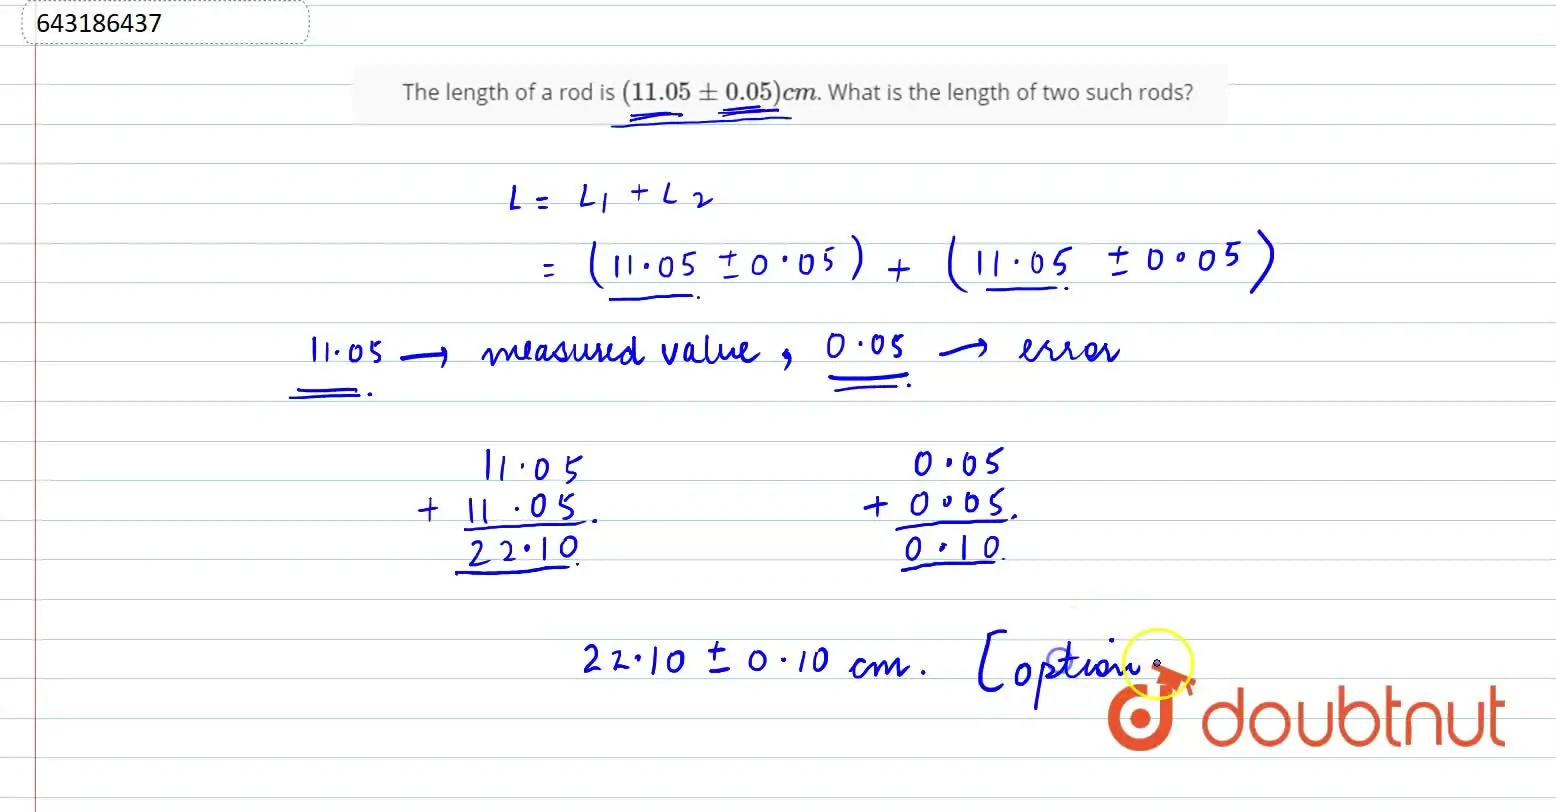 643186437
The length of a rod is (11.05 ± 0.05)cm. What is the length of two such rods?
L = L₁ + L₂
= (11.05 ± 0.05) + (11.05 ± 0.05)
11.05 → measured value, 0.05 → error
11.05 0.05
+ 11.05 + 0.05
22.10 0.10
22.10 ± 0.10 cm. [option
doubtnut